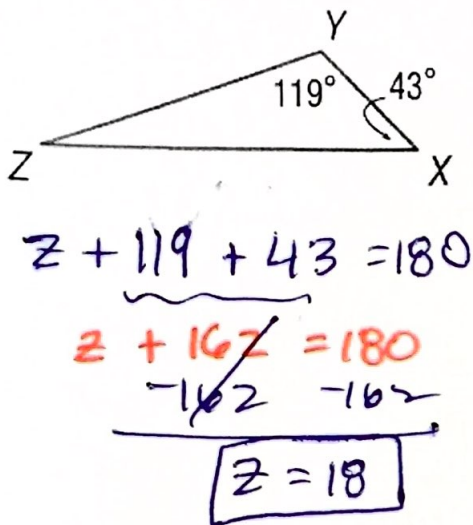 Y
119° 43°
Z
X
z + 119 + 43 = 180
z + 162 = 180
-162 -162
z = 18